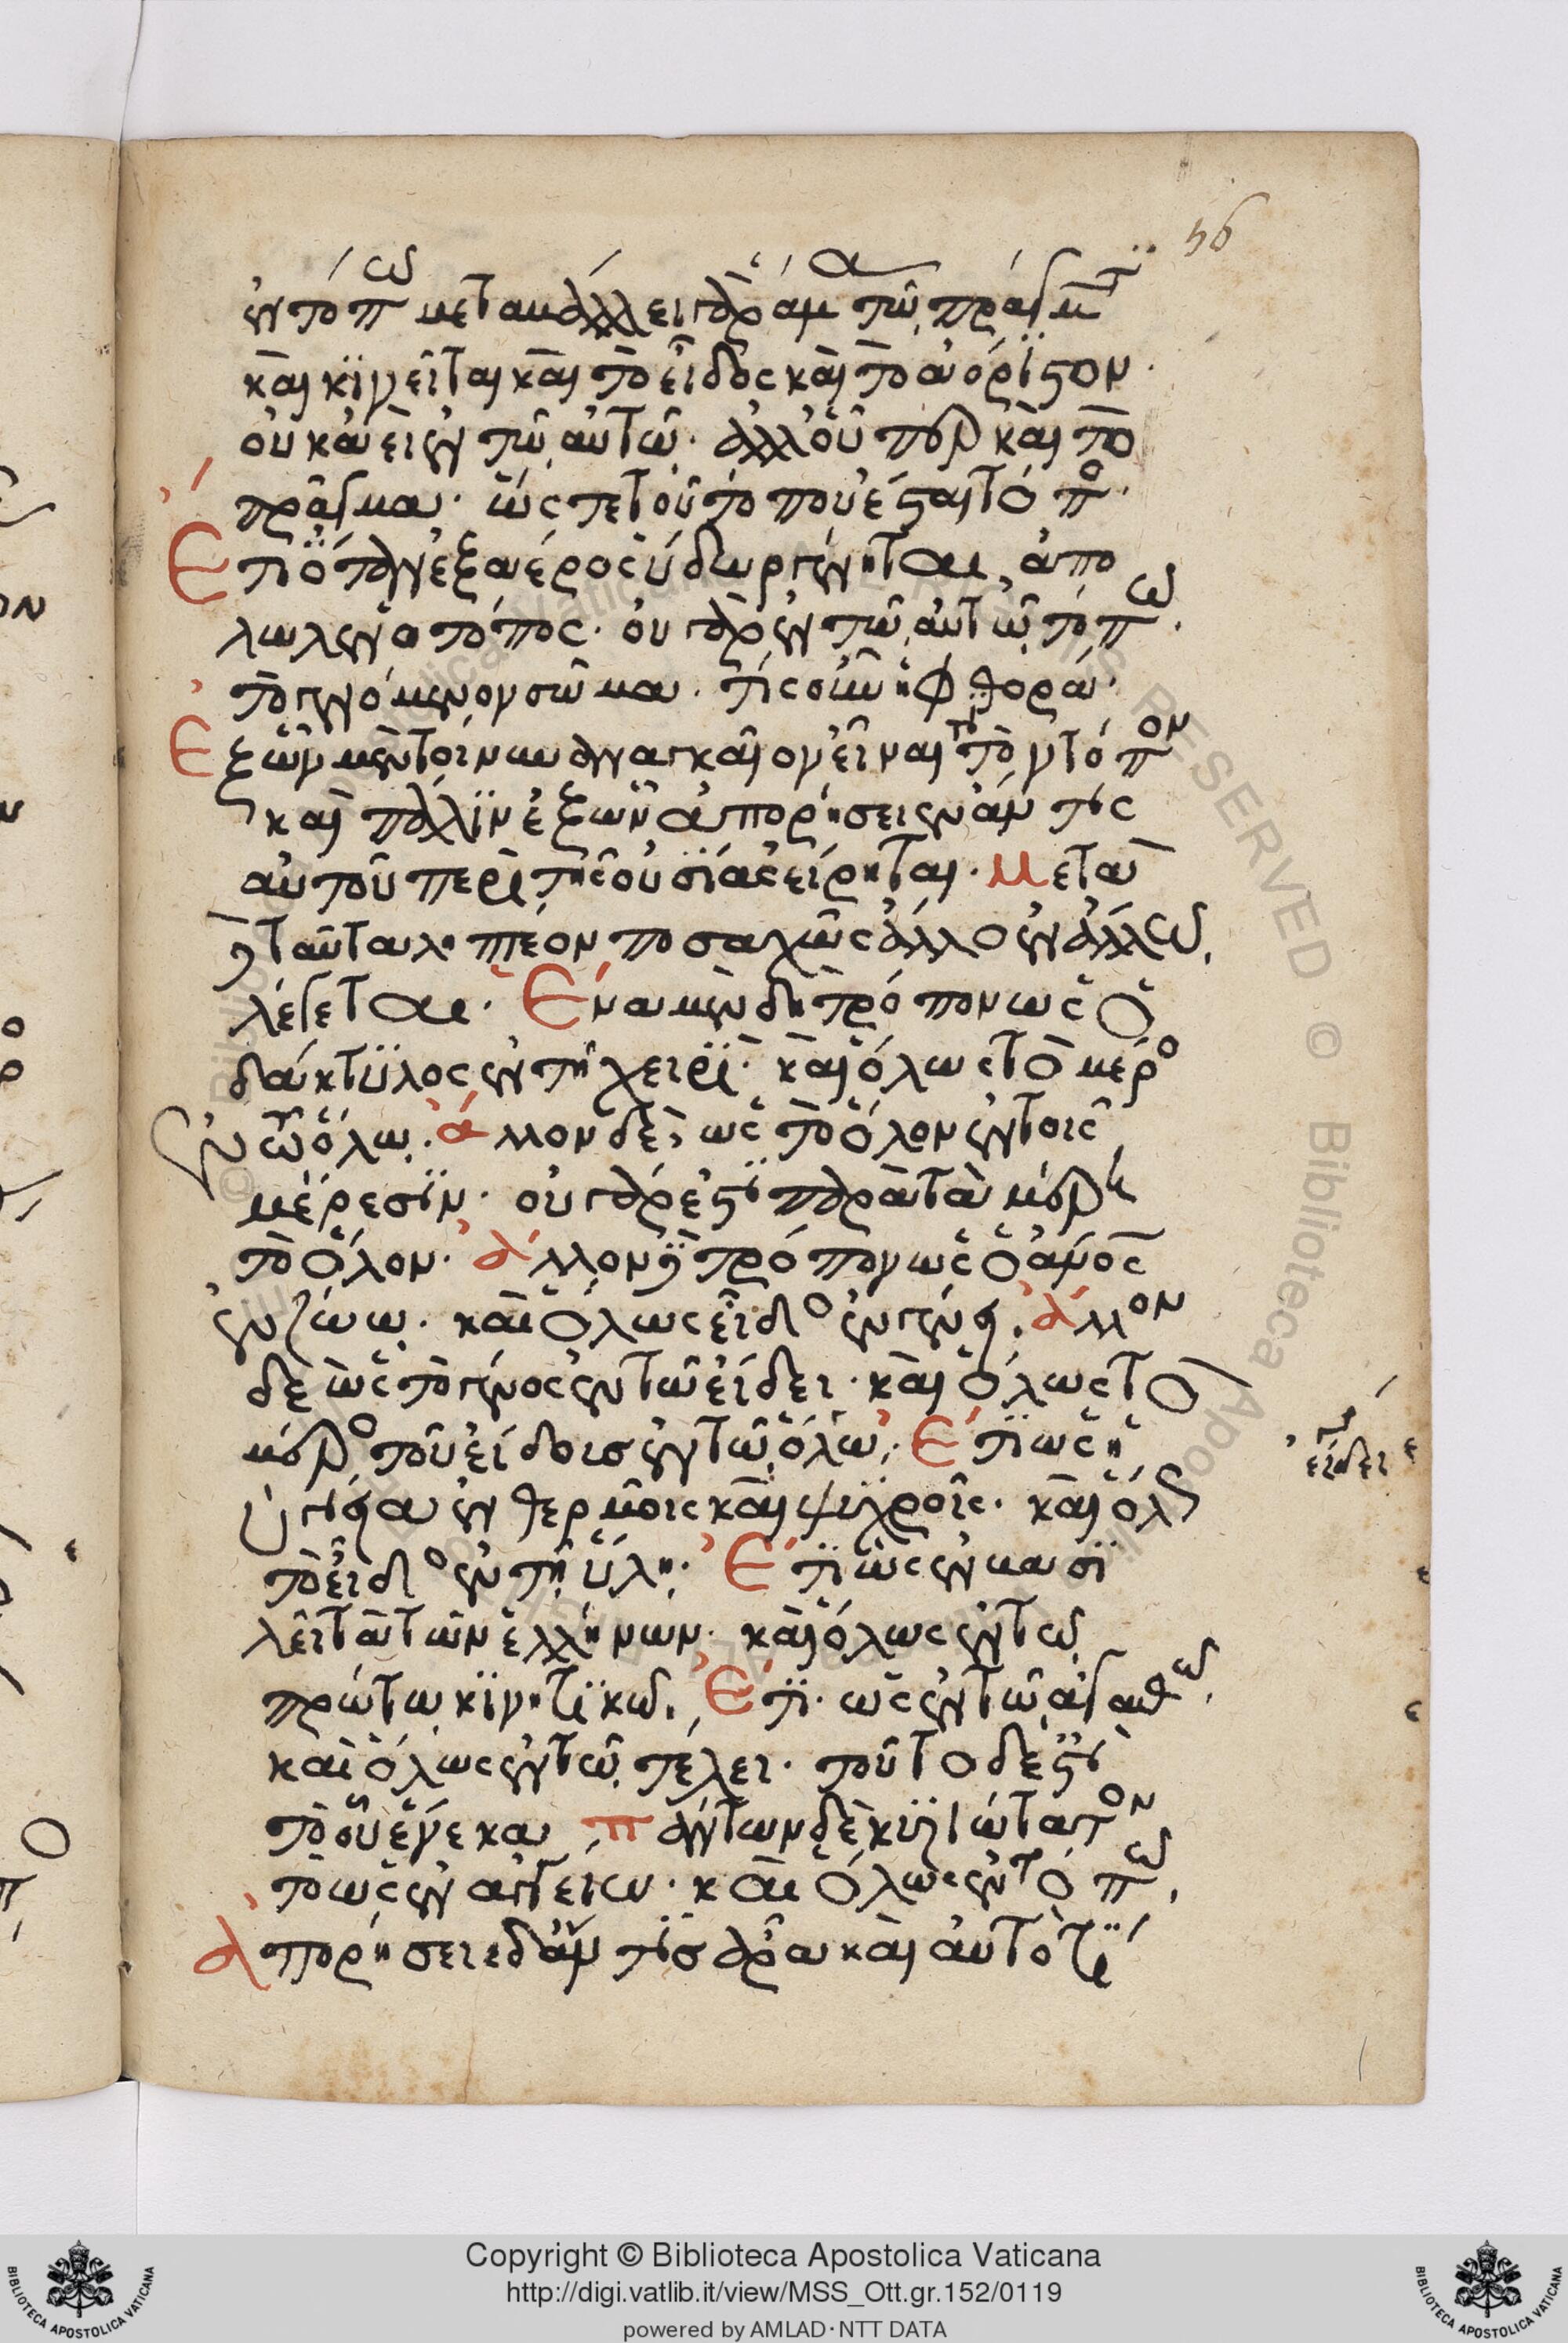 56
ἐν τόπω μεταβάλλει γὰρ ἅμα τῷ πράγματι
καὶ κινεῖται καὶ τὸ εἶδος καὶ τὸ ἀόριστον.
οὐκ ἀεὶ ἐν τῷ αὐτῷ. ἀλλ' οὗπερ καὶ τὸ
πρᾶγμα. ὥστε τοῦ τόπου ἔσται τόπος.
Ἔτι ὅταν ἐξ ἀέρος ὕδωρ γένηται ἀπό
λωλεν ὁ τόπος. οὐ γὰρ ἐν τῷ αὐτῷ τόπω.
τὸ γενόμενον σῶμα. τίς οὖν ἡ φθορά.
Ἐξ ὧν μὲν τοίνυν ἀναγκαῖον εἶναί τι τὸν τόπον
καὶ πάλιν ἐξ ὧν ἀπορήσειεν ἄν τις
αὐτοῦ περὶ τῆς οὐσίας εἴρηται. Μετὰ
δὲ ταῦτα ληπτέον ποσαχῶς ἄλλο ἐν ἄλλω.
λέγεται. Ἕνα μὲν δὴ τρόπον ὡς ὁ
δάκτυλος ἐν τῇ χειρί. καὶ ὅλως τὸ μέρος
ἐν τῶ ὅλω. ἄλλον δὲ, ὡς τὸ ὅλον ἐν τοῖς
μέρεσιν. οὐ γάρ ἐστι παρὰ τὰ μέρη
τὸ ὅλον. ἄλλον δὲ τρόπον ὡς ὁ ἄνος
ἐν ζώω. καὶ ὅλως εἶδος ἐν γένει. ἄλλον
δὲ ὡς τὸ γένος ἐν τῷ εἴδει. καὶ ὅλως τὸ
μέρος τοῦ εἴδους ἐν τῷ ὅλω. Ἔτι ὡς ἡ
εἴδει
ὑγίεια ἐν θερμοῖς καὶ ψυχροῖς. καὶ ὅλως
τὸ εἶδος ἐν τῇ ὕλῃ. Ἔτι ὡς ἐν βασι
λεῖ τὰ τῶν ἑλλήνων. καὶ ὅλως ἐν τῶ
πρώτω κινητικῶ. Ἔτι. ὡς ἐν τῷ ἀγαθῶ.
καὶ ὅλως ἐν τῷ τέλει. τοῦτο δέ ἐστι
τὸ οὗ ἕνεκα πάντων δὲ κυριώτατον
τὸ ὡς ἐν ἀγγείω. καὶ ὅλως ἐν τόπω.
Ἀπορήσειε δ' ἄν τις ἆρα καὶ αὐτό τι
Copyright © Biblioteca Apostolica Vaticana
http://digi.vatlib.it/view/MSS_Ott.gr.152/0119
powered by AMLAD·NTT DATA